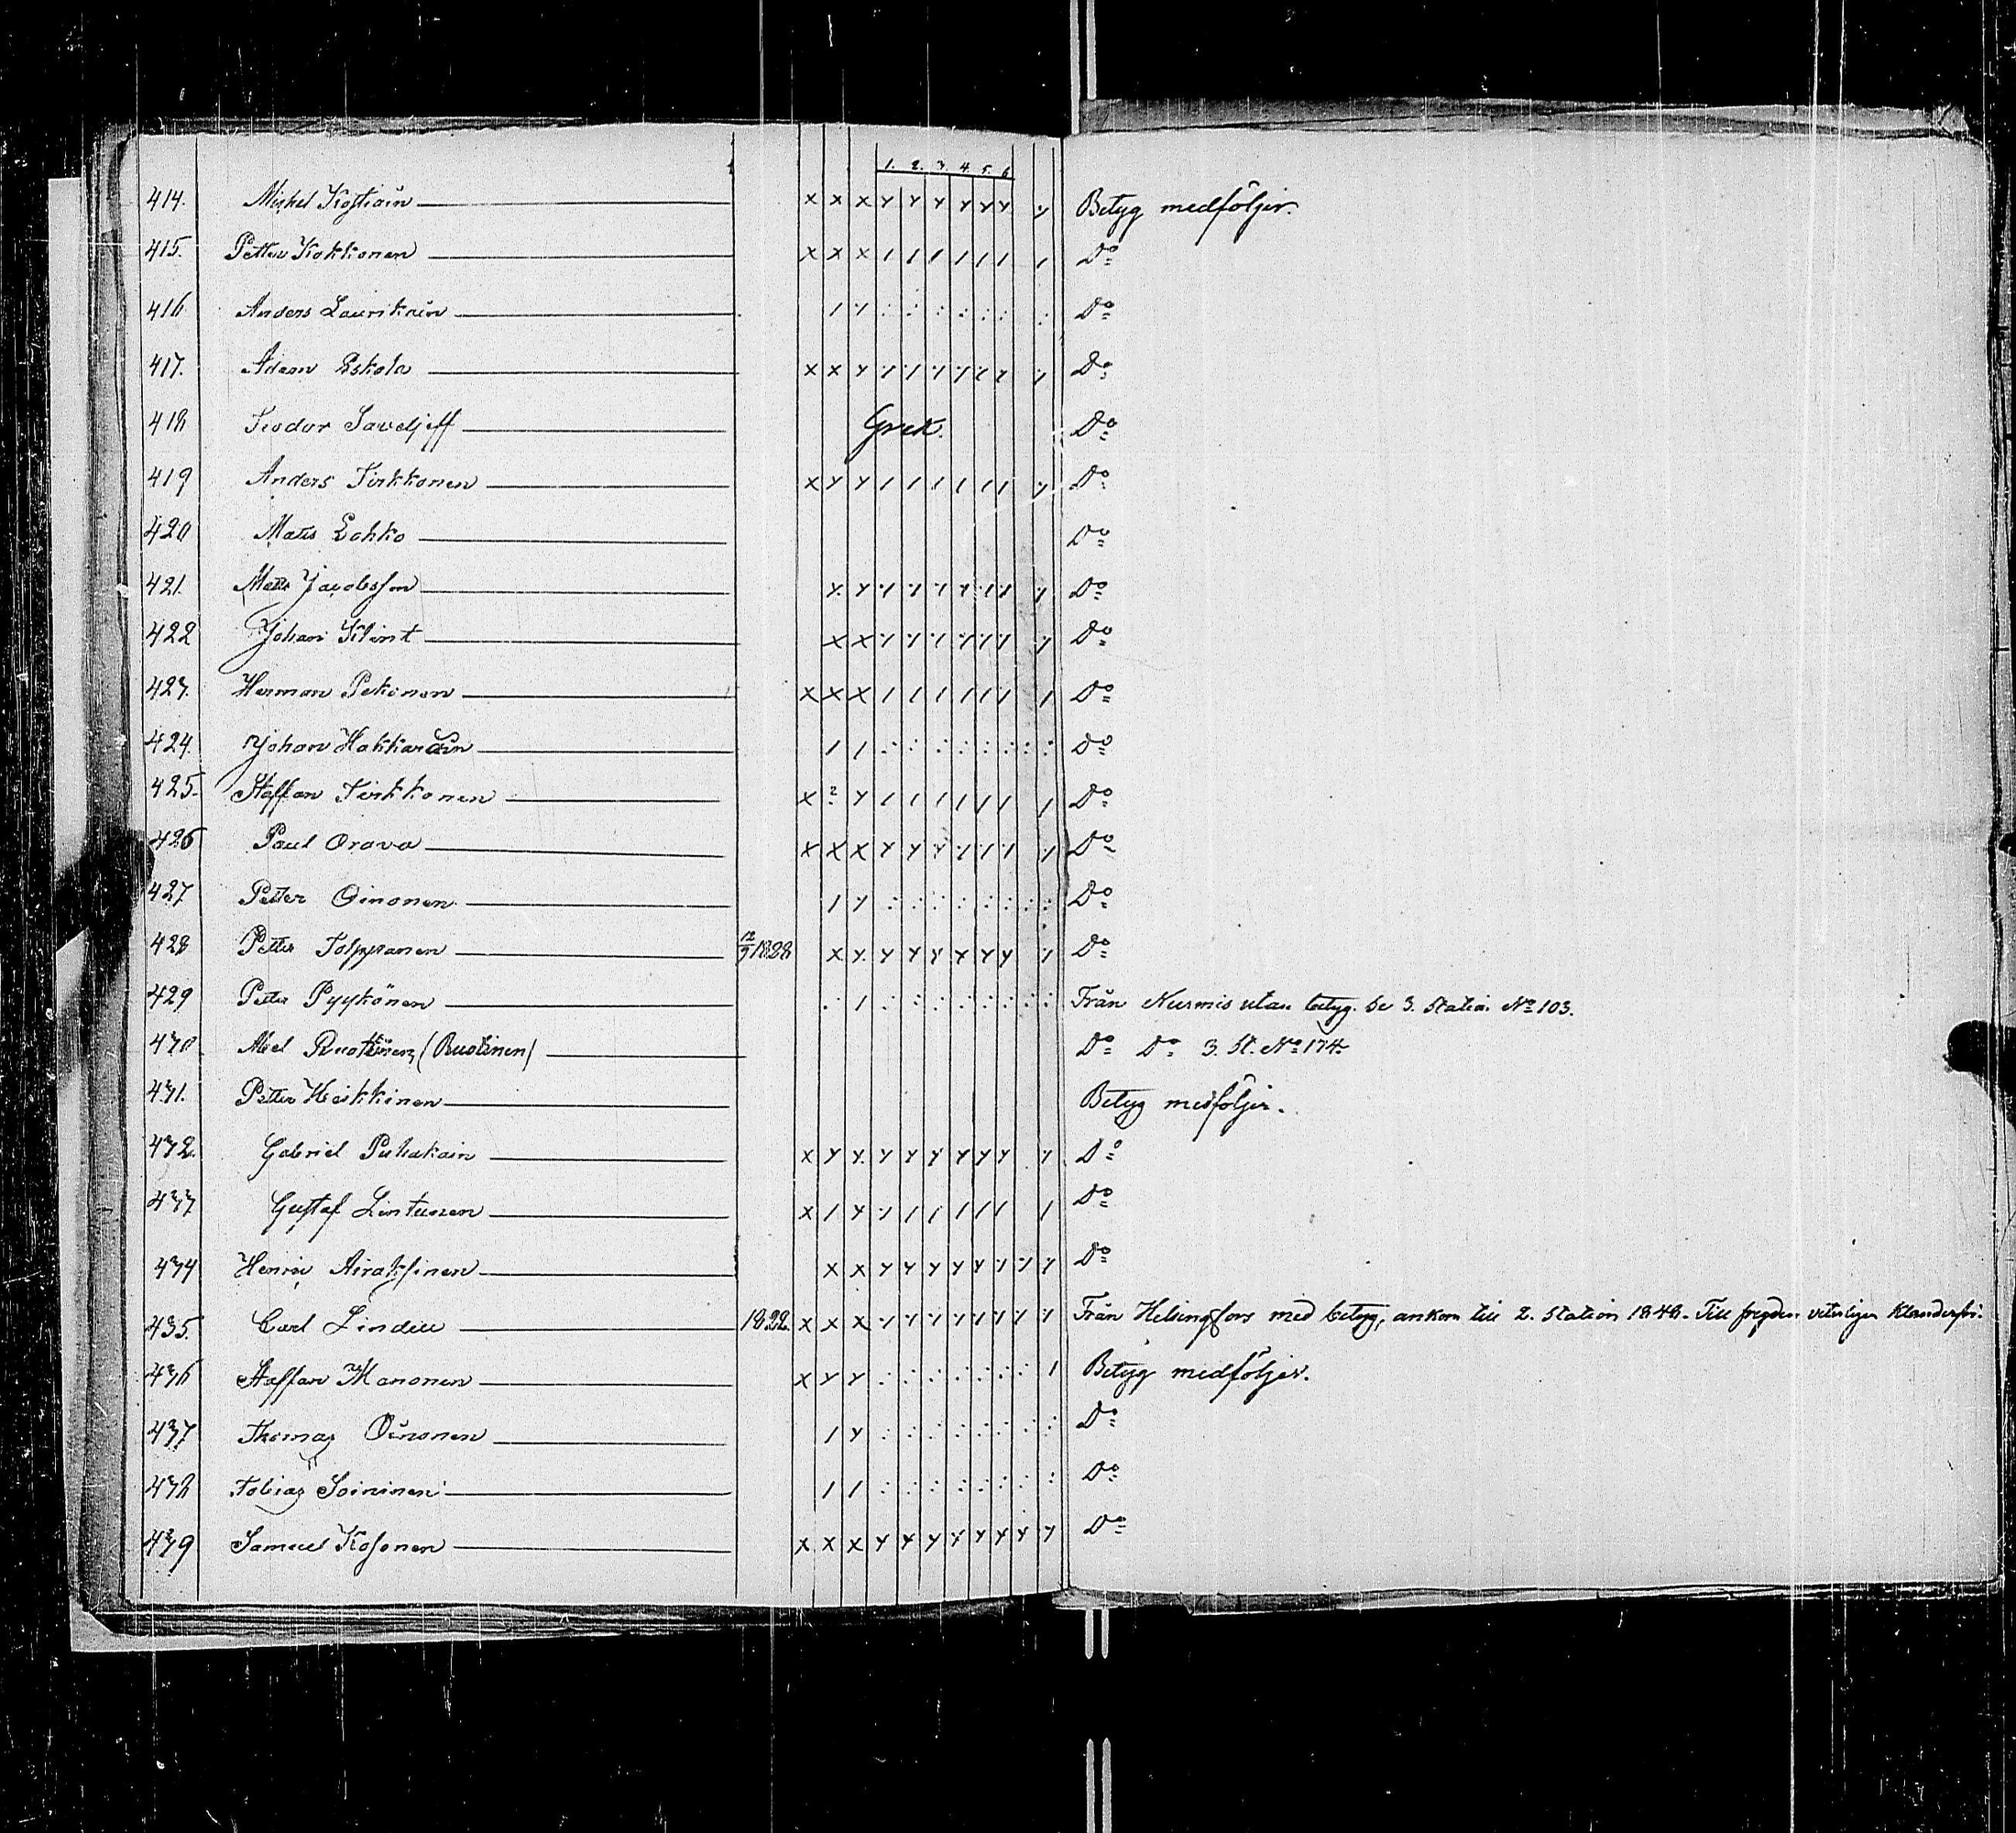 1. 2. 3. 4. 5. 6
414. Michel Kostiain x x x y y y y y y y Betyg medföljer.
415. Petter Kokkonen x x x / / / / / / / Do
416 Anders Laurikain / y Do
417. Adam Eskola Do
418 Feodor Saveljeff Grek. Do
419 Anders Tirkkonen Do
420 Mats Lohko Do
421. Mats Jacobsson Do
422 Johan Klint Do
423. Herman Pekonen x x x / / / / / / / Do
424. Johan Hakkarain / / Do
425. Staffan Tirkkonen x 2 y / / / / / / / Do
426 Paul Orava Do
427 Petter Oinonen / y Do
428 Petter Tolppanen 12/9 1828 Do
429 Petter Pyykönen Från Nurmis utan betyg. Se 3. Station No 103.
430 Abel Ruottinen (Ruotinen) Do Do 3. St. No 174.
431. Petter Heikkinen Betyg medföljer.
432. Gabriel Puhakain x y y y y y y y y y Do
433 Gustaf Lintunen Do
434 Henric Airaksinen Do
435. Carl Lindell 1822. x x x Från Helsingfors med betyg, ankom till 2. Station 1848. Till frejden veterligen klanderfri.
436 Staffan Manonen x y y / Betyg medföljer.
437 Thomas Oinonen / y Do
438 Tobias Soininen / / Do
439 Samuel Kosonen x x x y y y y y y y y Do